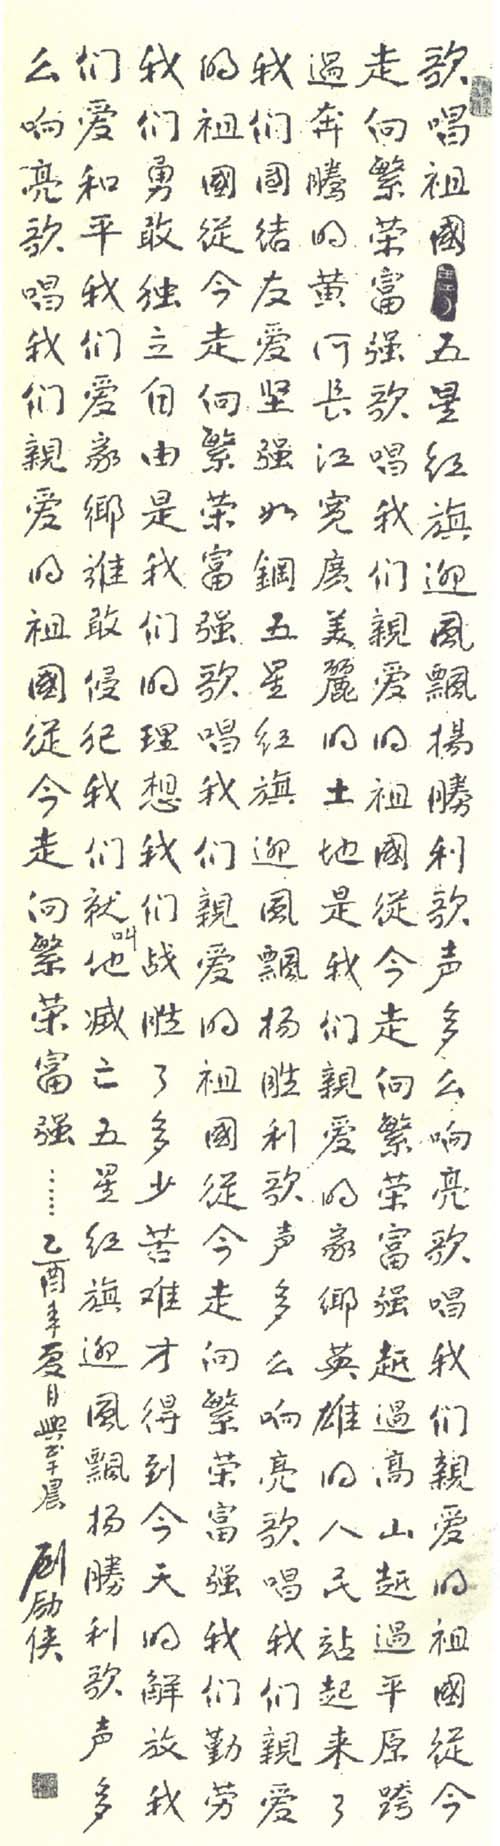 歌唱祖國五星红旗迎風飄揚勝利歌声多么响亮歌唱我们親爱的祖國從今
走向繁荣富强歌唱我们親爱的祖國從今走向繁荣富强越過高山越過平原跨
過奔騰的黄河長江宽廣美麗的土地是我们親爱的家鄉英雄的人民站起来了
我们团结友爱坚强如鋼五星红旗迎風飄扬胜利歌声多么响亮歌唱我们親爱
的祖國從今走向繁荣富强歌唱我们親爱的祖國從今走向繁荣富强我们勤劳
我们勇敢独立自由是我们的理想我们战胜了多少苦难才得到今天的解放我
们爱和平我们爱家鄉谁敢侵犯我们就叫他滅亡五星红旗迎風飄扬勝利歌声多
么响亮歌唱我们親爱的祖國從今走向繁荣富强……乙酉年夏日晨 刘励侠